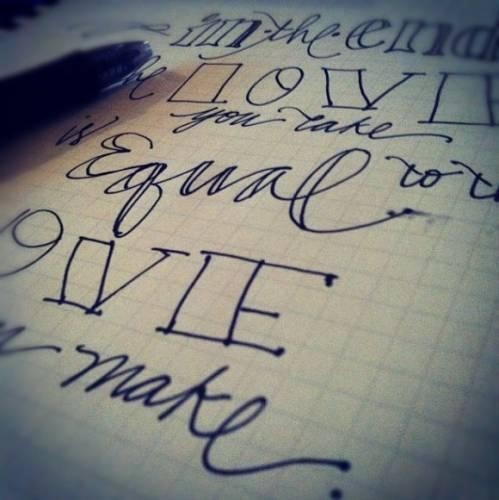 in the end
he LOVE
you take
is Equal to th
OVE
u make.